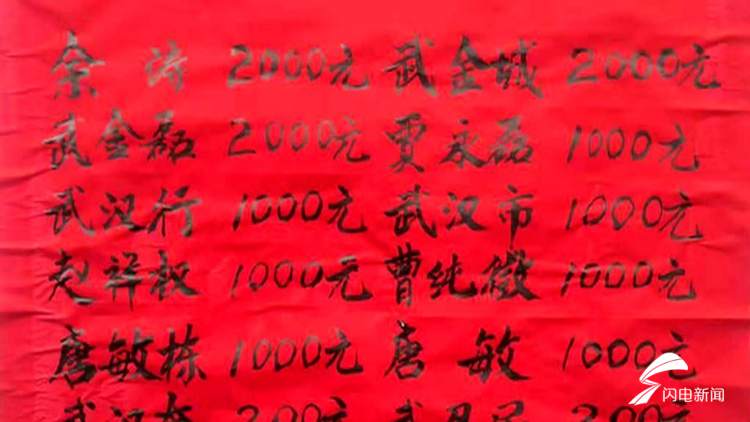 余 涛 2000元 武金城 2000元
武金磊 2000元 贾永磊 1000元
武汉行 1000元 武汉市 1000元
赵祥权 1000元 曹纯俊 1000元
唐敏栋 1000元 唐 敏 1000元
200元 200元
闪电新闻